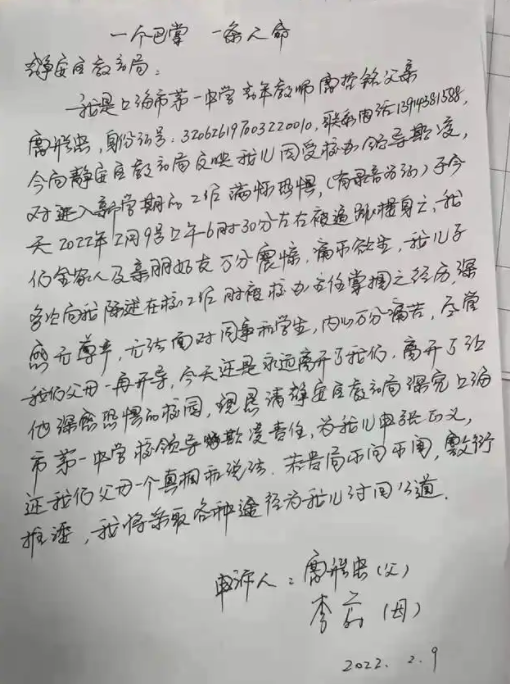 一个巴掌 一条人命
静安区教育局:
我是上海市第一中学青年教师 父亲
,身份证号:320626197003220010,联系电话13914381588,
今向静安区教育局反映我儿因受校办领导欺凌,
对进入新学期的工作满怀恐惧,(有录音为证)于今
天2022年2月9号上午6时30分左右被逼跳楼身亡,我
们全家人及亲朋好友万分震惊,痛不欲生,我儿子
多次向我陈述在校工作时被校办主任掌掴之经历,深
感无尊严,无法面对同事和学生,内心万分痛苦,尽管
我们父母一再开导,今天还是永远离开了我们,离开了让
他深感恐惧的校园,现恳请静安区教育局深究上海
市第一中学校领导欺凌责任,为我儿申张正义,
还我们父母一个真相和说法.若贵局不问不闻,敷衍
推诿,我将采取各种途径为我儿讨回公道.
申诉人: (父)
李 (母)
2022.2.9